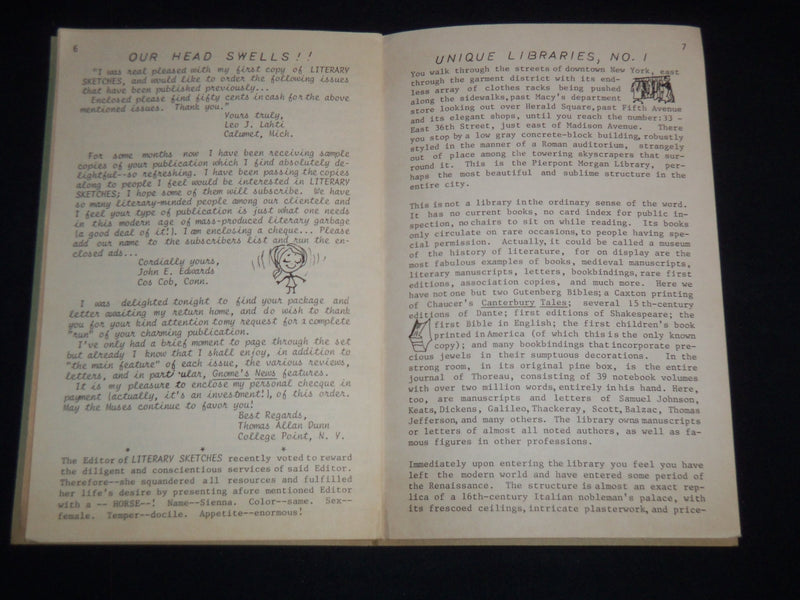 6
OUR HEAD SWELLS!!
"I was real pleased with my first copy of LITERARY
SKETCHES, and would like to order the following issues
that have been published previously...
Enclosed please find fifty cents in cash for the above
mentioned issues. Thank you."
Yours truly,
Leo J. Lahti
Calumet, Mich.
For some months now I have been receiving sample
copies of your publication which I find absolutely de-
lightful--so refreshing. I have been passing the copies
along to people I feel would be interested in LITERARY
SKETCHES; I hope some of them will subscribe. We have
so many literary-minded people among our clientele and
I feel your type of publication is just what one needs
in this modern age of mass-produced literary garbage
(a good deal of it!). I am enclosing a cheque... Please
add our name to the subscribers list and run the en-
closed ads...
Cordially yours,
John E. Edwards
Cos Cob, Conn.
I was delighted tonight to find your package and
letter awaiting my return home, and do wish to thank
you for your kind attention to my request for a complete
"run" of your charming publication.
I've only had a brief moment to page through the set
but already I know that I shall enjoy, in addition to
"the main feature" of each issue, the various reviews,
letters, and in part ular, Gnome's News features.
It is my pleasure to enclose my personal checque in
payment (actually, it's an investment!), of this order.
May the Muses continue to favor you!
Best Regards,
Thomas Allan Dunn
College Point, N. Y.
* * *
The Editor of LITERARY SKETCHES recently voted to reward
the diligent and conscientious services of said Editor.
Therefore--she squandered all resources and fulfilled
her life's desire by presenting afore mentioned Editor
with a -- HORSE--! Name--Sienna. Color--same. Sex--
female. Temper--docile. Appetite--enormous!
7
UNIQUE LIBRARIES, NO. 1
You walk through the streets of downtown New York, east
through the garment district with its end-
less array of clothes racks being pushed
along the sidewalks, past Macy's department
store looking out over Herald Square, past Fifth Avenue
and its elegant shops, until you reach the number: 33 -
East 36th Street, just east of Madison Avenue. There
you stop by a low gray concrete-block building, robustly
styled in the manner of a Roman auditorium, strangely
out of place among the towering skyscrapers that sur-
round it. This is the Pierpont Morgan Library, per-
haps the most beautiful and sublime structure in the
entire city.
This is not a library in the ordinary sense of the word.
It has no current books, no card index for public in-
spection, no chairs to sit on while reading. Its books
only circulate on rare occasions, to people having spe-
cial permission. Actually, it could be called a museum
of the history of literature, for on display are the
most fabulous examples of books, medieval manuscripts,
literary manuscripts, letters, bookbindings, rare first
editions, association copies, and much more. Here we
have not one but two Gutenberg Bibles; a Caxton printing
of Chaucer's Canterbury Tales; several 15th-century
editions of Dante; first editions of Shakespeare; the
first Bible in English; the first children's book
printed in America (of which this is the only known
copy); and many bookbindings that incorporate pre-
cious jewels in their sumptuous decorations. In the
strong room, in its original pine box, is the entire
journal of Thoreau, consisting of 39 notebook volumes
with over two million words, entirely in his hand. Here,
too, are manuscripts and letters of Samuel Johnson,
Keats, Dickens, Galileo, Thackeray, Scott, Balzac, Thomas
Jefferson, and many others. The library owns manuscripts
or letters of almost all noted authors, as well as fa-
mous figures in other professions.
Immediately upon entering the library you feel you have
left the modern world and have entered some period of
the Renaissance. The structure is almost an exact rep-
lica of a 16th-century Italian nobleman's palace, with
its frescoed ceilings, intricate plasterwork, and price-